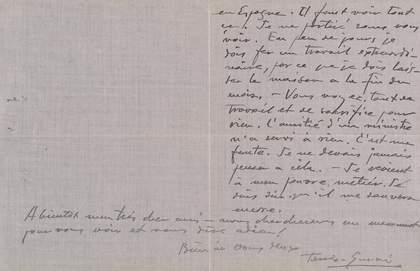 en Espagne. Il faut voir tout
ça. Je ne partirai sans vous
voir. En peu de jours je
dois un travail
naire, par ce que je dois lais-
ser la maison a la fin du
mois. — Vous voyez, tant de
travail et de sacrifice pour
rien. L'amitié d'un ministre
n'a servi à rien. C'est ma
faute. Je ne devais jamais
penser a cela. — Je
à mon pauvre métier. Je
dois dire qu'il me sauvera
encore.
A bientot mon très cher ami — nous chercherons un moment
pour vous voir et vous dire adieu!
Bien à vous deux